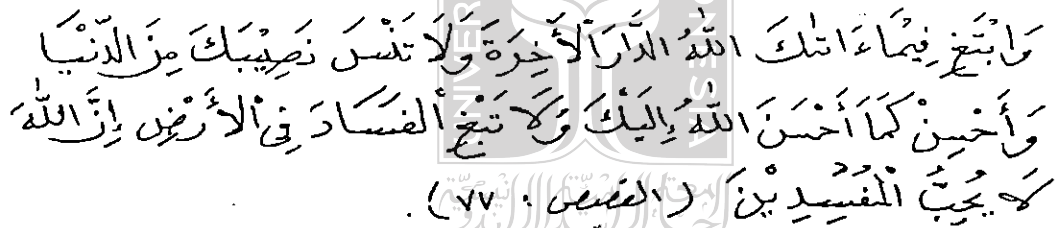 وَابْتَغِ فِيْمَا ءَاتٰكَ اللّٰهُ الدَّارَ اْلأَخِرَةَ وَلَا تَنْسَ نَصِيْبَكَ مِنَ الدُّنْيَا
وَأَحْسِنْ كَمَا أَحْسَنَ اللّٰهُ إِلَيْكَ وَلَا تَبْغِ اْلفَسَادَ فِى اْلأَرْضِ إِنَّ اللّٰهَ
لَا يُحِبُّ اْلمُفْسِدِيْنَ (القصص : ٧٧).